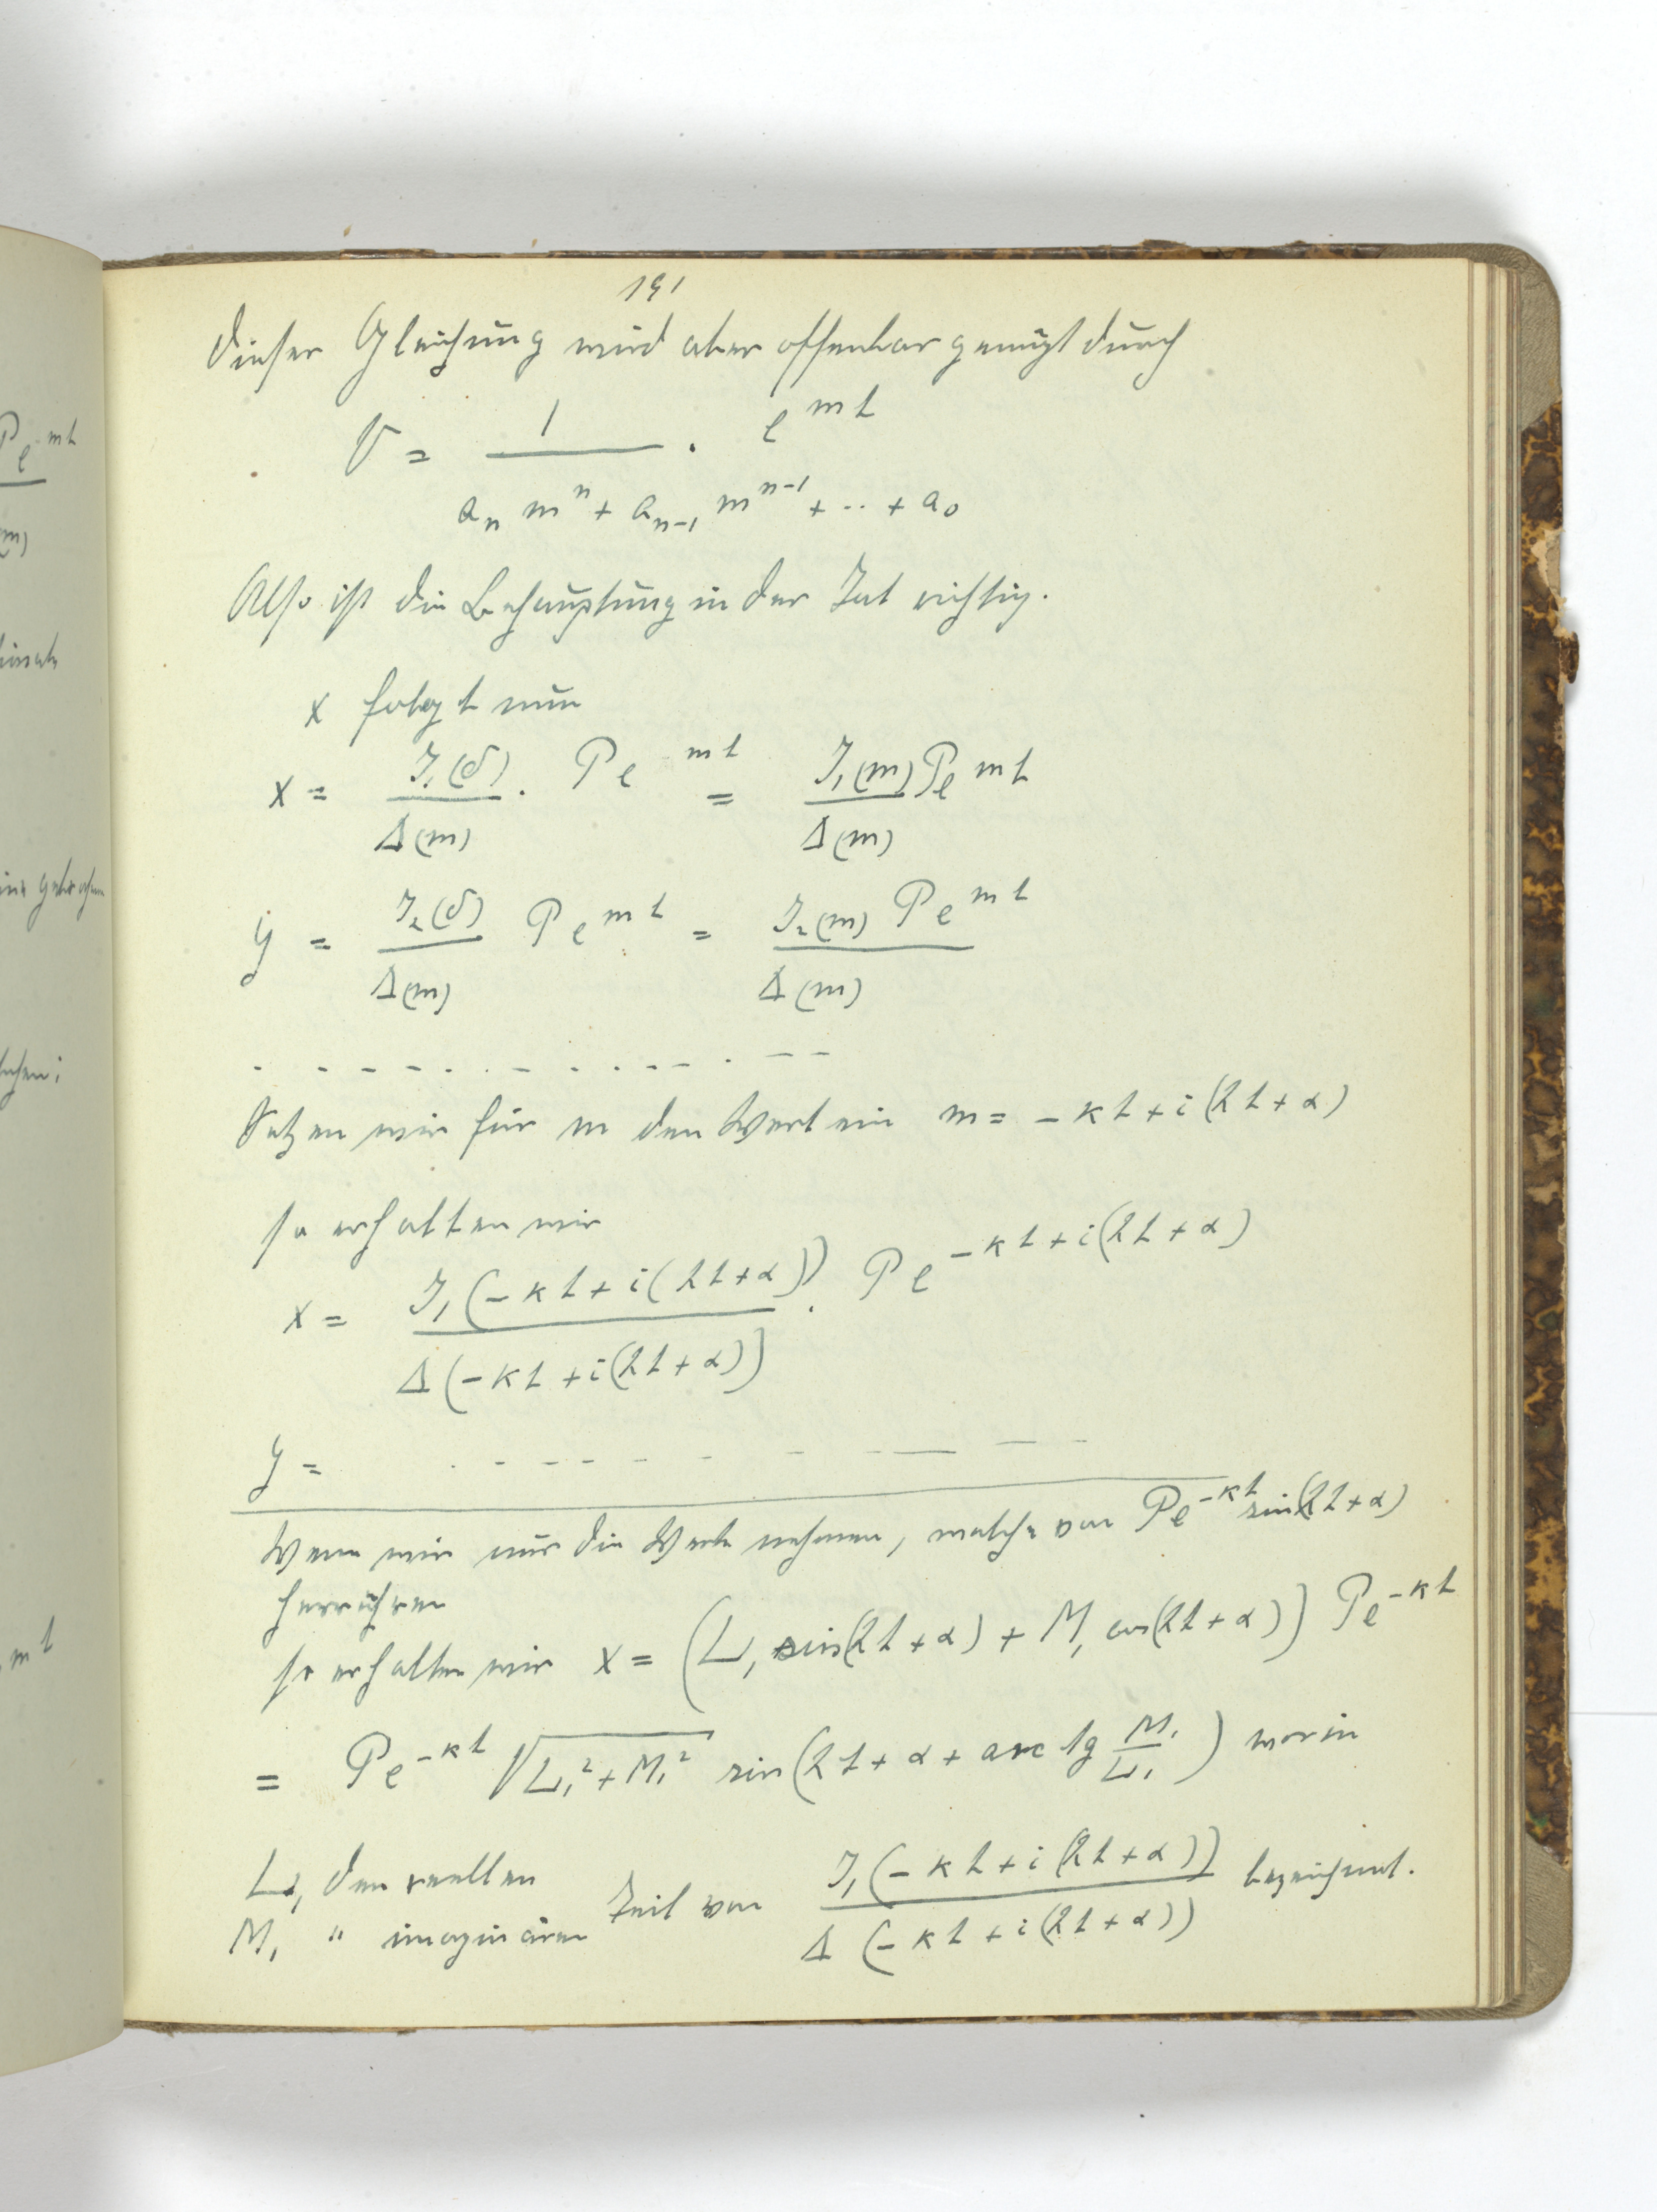 191
Dieser Gleichung wird aber offenbar genügt durch
V = 1 / (aₙ mⁿ + aₙ₋₁ mⁿ⁻¹ + .. + a₀) · e^{mt}
Also ist die Behauptung in der Tat richtig.
x folgt nun
x = J₁(δ) / Δ(m) · Pe^{mt} = J₁(m) Pe^{mt} / Δ(m)
y = J₂(δ) / Δ(m) Pe^{mt} = J₂(m) Pe^{mt} / Δ(m)
Setzen wir für m den Wert ein m = -κt + i(λt + α)
so erhalten wir
x = J₁(-κt + i(λt + α)) / Δ(-κt + i(λt + α)) · Pe^{-κt + i(λt + α)}
y =
Wenn wir nur die Werte nehmen, welche von Pe^{-κt} sin(λt + α)
herrühren
so erhalten wir x = (L₁ sin(λt + α) + M₁ cos(λt + α)) Pe^{-κt}
= Pe^{-κt} √(L₁² + M₁²) sin(λt + α + arc tg M₁/L₁) worin
L₁ den reellen
M₁ " imaginären Teil von J₁(-κt + i(λt + α)) / Δ(-κt + i(λt + α)) bezeichnet.